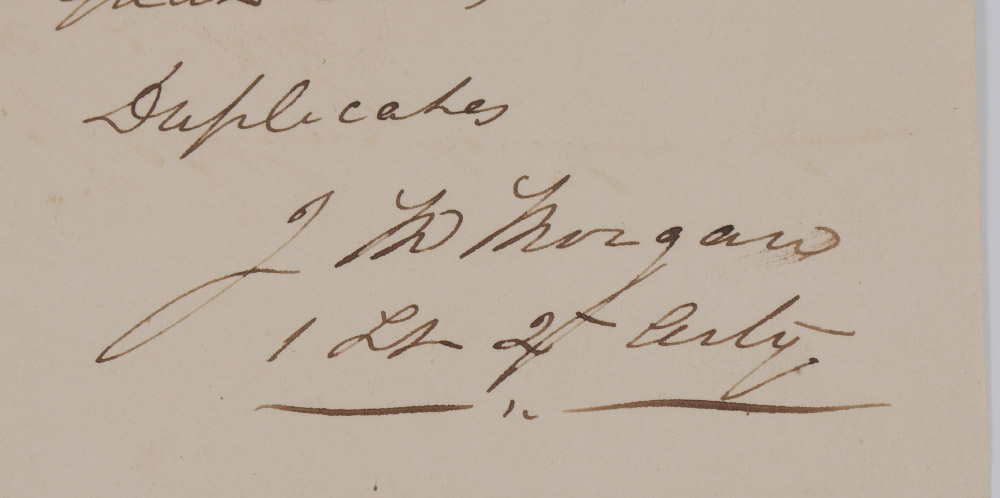 Duplicates
J M Morgan
1 Lt 2f Arty